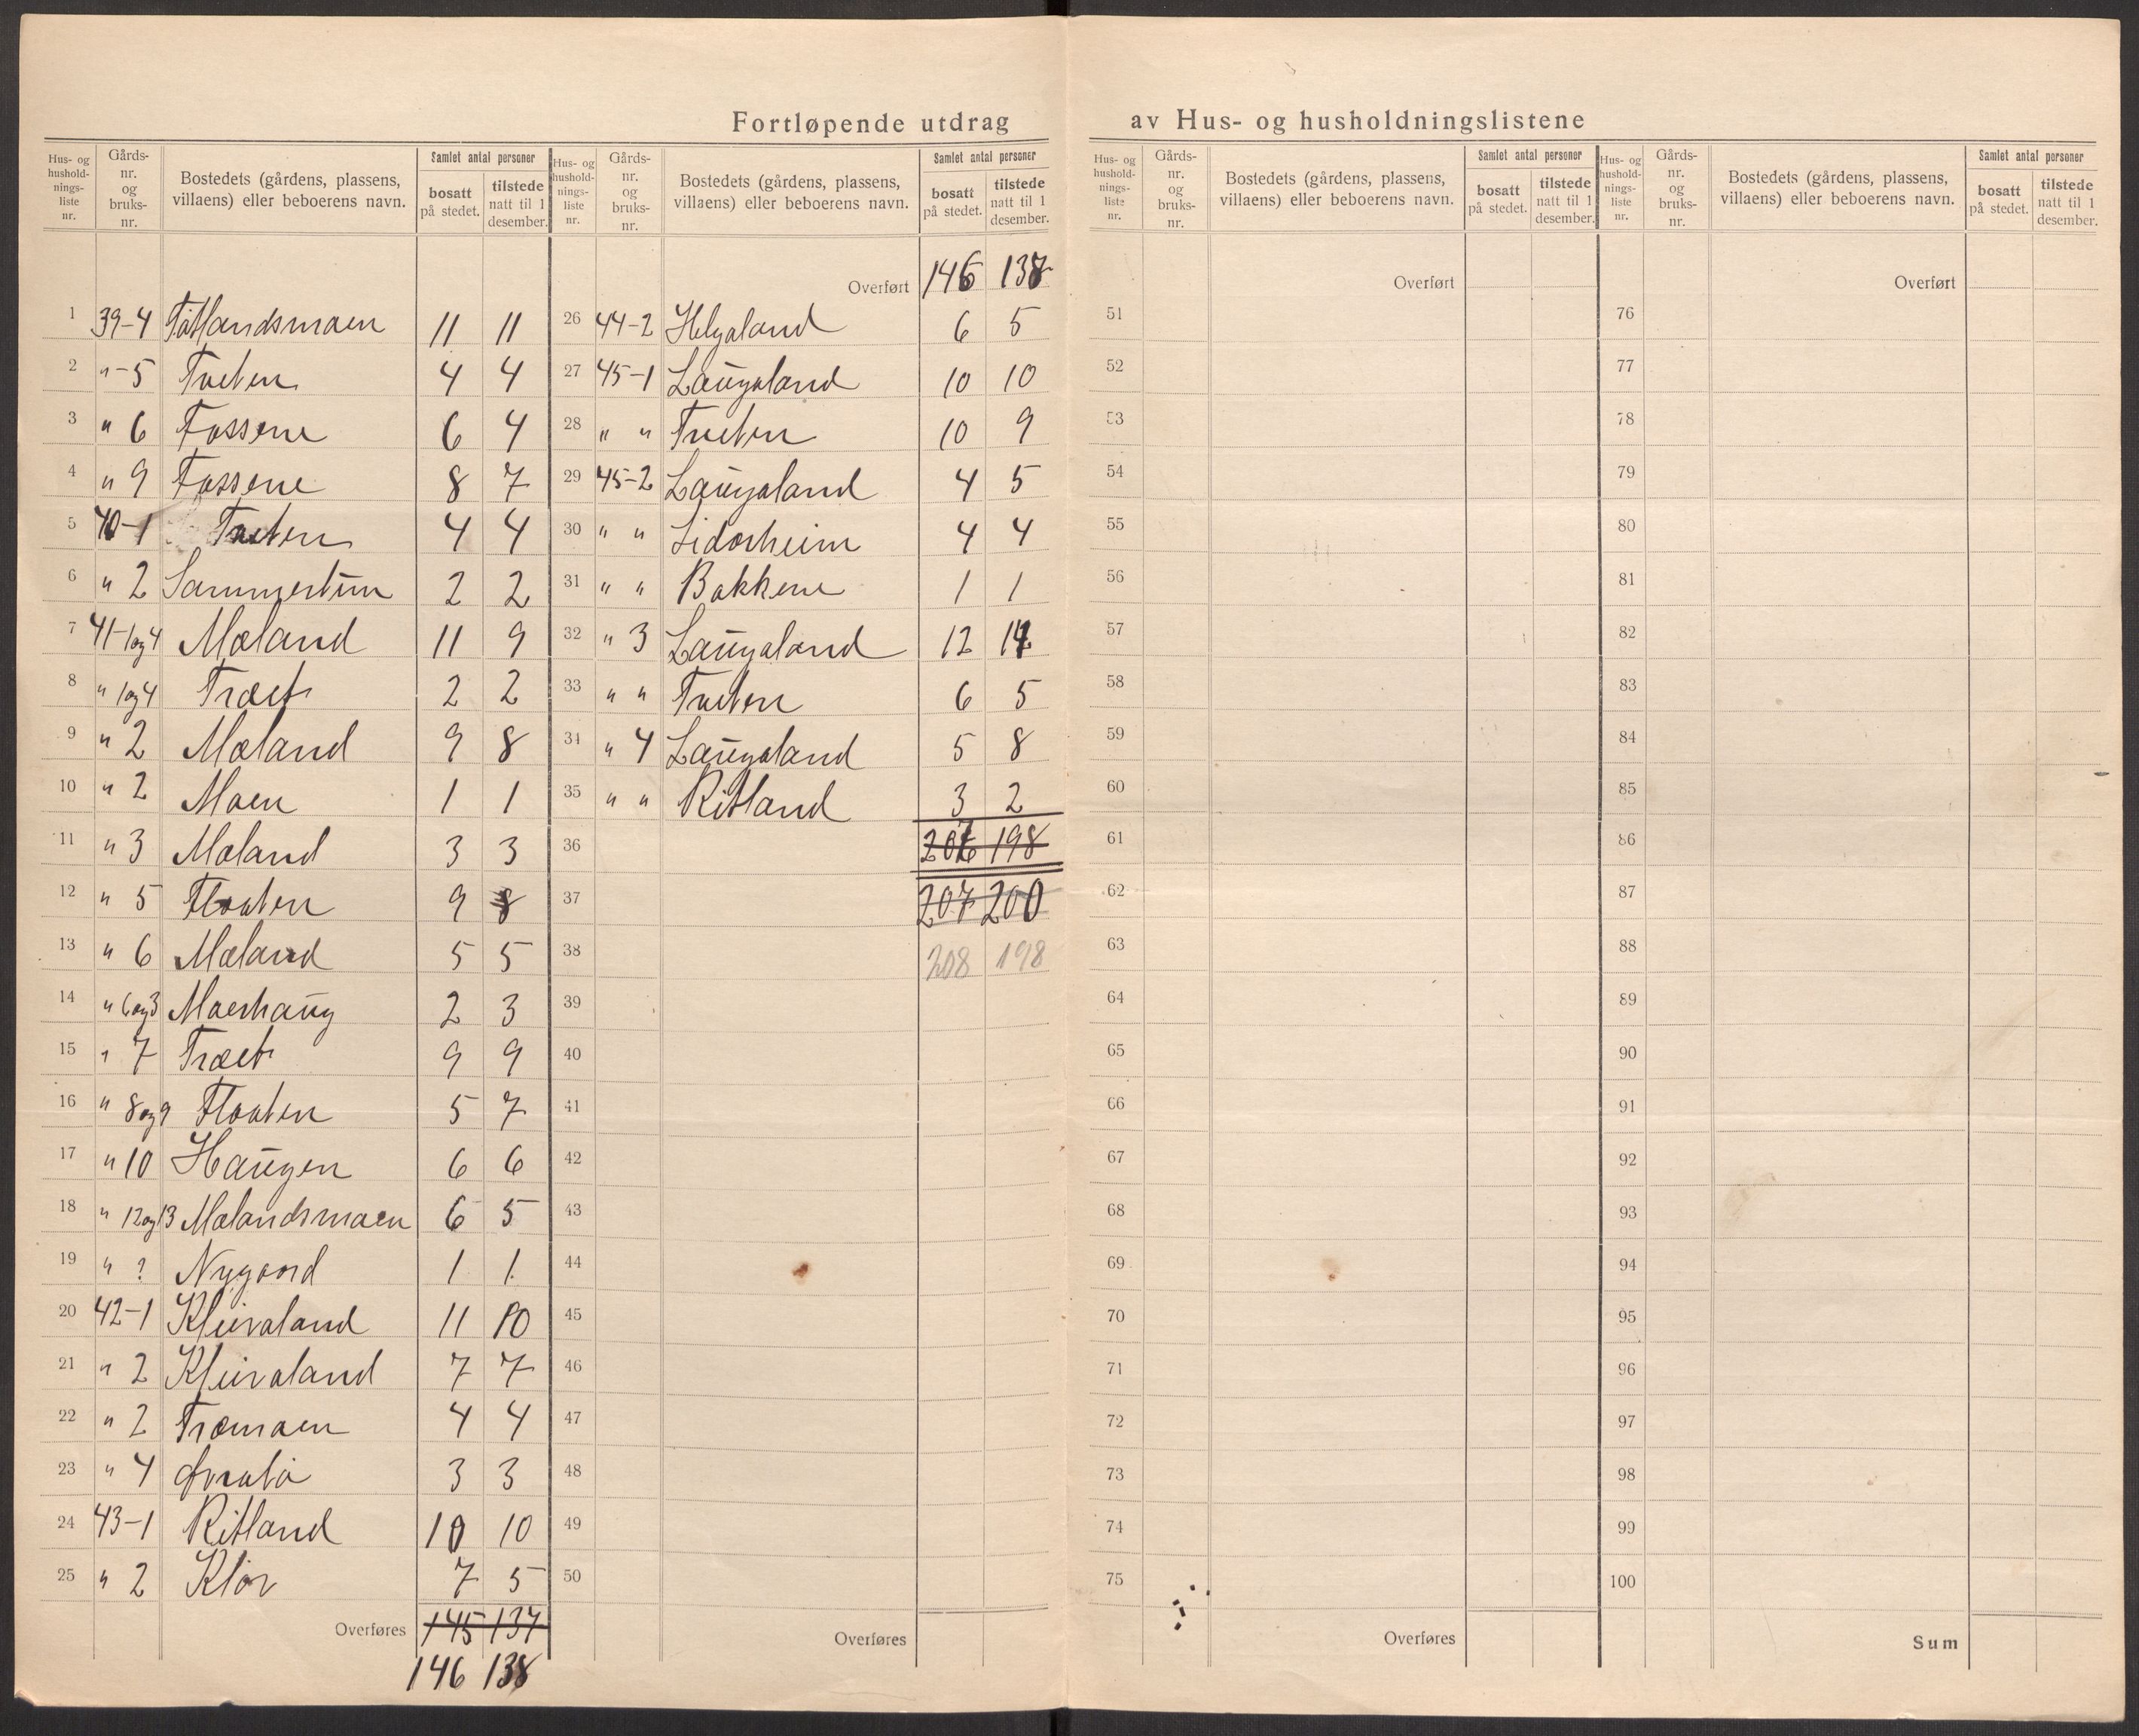 Fortløpende utdrag av Hus- og husholdningslistene
Hus- og husholdnings- liste nr. | Gårds- nr. og bruks- nr. | Bostedets (gårdens, plassens, villaens) eller beboerens navn. | Samlet antal personer bosatt på stedet. | tilstede natt til 1 desember.
1 39-4 Tøtlandsmoen 11 11
2 " -5 Tveten 4 4
3 " 6 Fossene 6 4
4 " 9 Fossene 8 7
5 40-1 Tveten 4 4
6 " 2 Sammertun 2 2
7 41-1og4 Mæland 11 9
8 " 1og4 Træet 2 2
9 " 2 Mæland 9 8
10 " 2 Moen 1 1
11 " 3 Mæland 3 3
12 " 5 Flaaten 9 8
13 " 6 Mæland 5 5
14 " 6og3 Moerhaug 2 3
15 " 7 Træet 9 9
16 " 8og9 Flaaten 5 7
17 " 10 Haugen 6 6
18 " 12og13 Mælandsmoen 6 5
19 " ? Nygaard 1 1
20 42-1 Kleivaland 11 10
21 " 2 Kleivaland 7 7
22 " 2 Træmoen 4 4
23 " 4 3 3
24 43-1 Ritland 10 10
25 " 2 Kløv 7 5
Overføres 145 137
146 138
Hus- og husholdnings- liste nr. | Gårds- nr. og bruks- nr. | Bostedets (gårdens, plassens, villaens) eller beboerens navn. | Samlet antal personer bosatt på stedet. | tilstede natt til 1 desember.
Overført 146 138
26 44-2 Helgaland 6 5
27 45-1 Laugaland 10 10
28 " " Tveten 10 9
29 45-2 Laugaland 4 5
30 " " Lidarheim 4 4
31 " " Bakkene 1 1
32 " 3 Laugaland 12
33 " " Tveten 6 5
34 " 4 Laugaland 5 8
35 " " Ritland 3 2
36 207 198
37 207 200
38 208 198
39
40
41
42
43
44
45
46
47
48
49
50
Overføres
Hus- og husholdnings- liste nr. | Gårds- nr. og bruks- nr. | Bostedets (gårdens, plassens, villaens) eller beboerens navn. | Samlet antal personer bosatt på stedet. | tilstede natt til 1 desember.
Overført
51
52
53
54
55
56
57
58
59
60
61
62
63
64
65
66
67
68
69
70
71
72
73
74
75
Overføres
Hus- og husholdnings- liste nr. | Gårds- nr. og bruks- nr. | Bostedets (gårdens, plassens, villaens) eller beboerens navn. | Samlet antal personer bosatt på stedet. | tilstede natt til 1 desember.
Overført
76
77
78
79
80
81
82
83
84
85
86
87
88
89
90
91
92
93
94
95
96
97
98
99
100
Sum